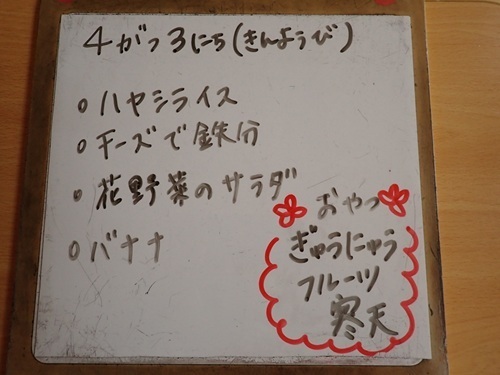 4がつ3にち(きんようび)
○ハヤシライス
○チーズで鉄分
○花野菜のサラダ
○バナナ
おやつ
ぎゅうにゅう
フルーツ
寒天